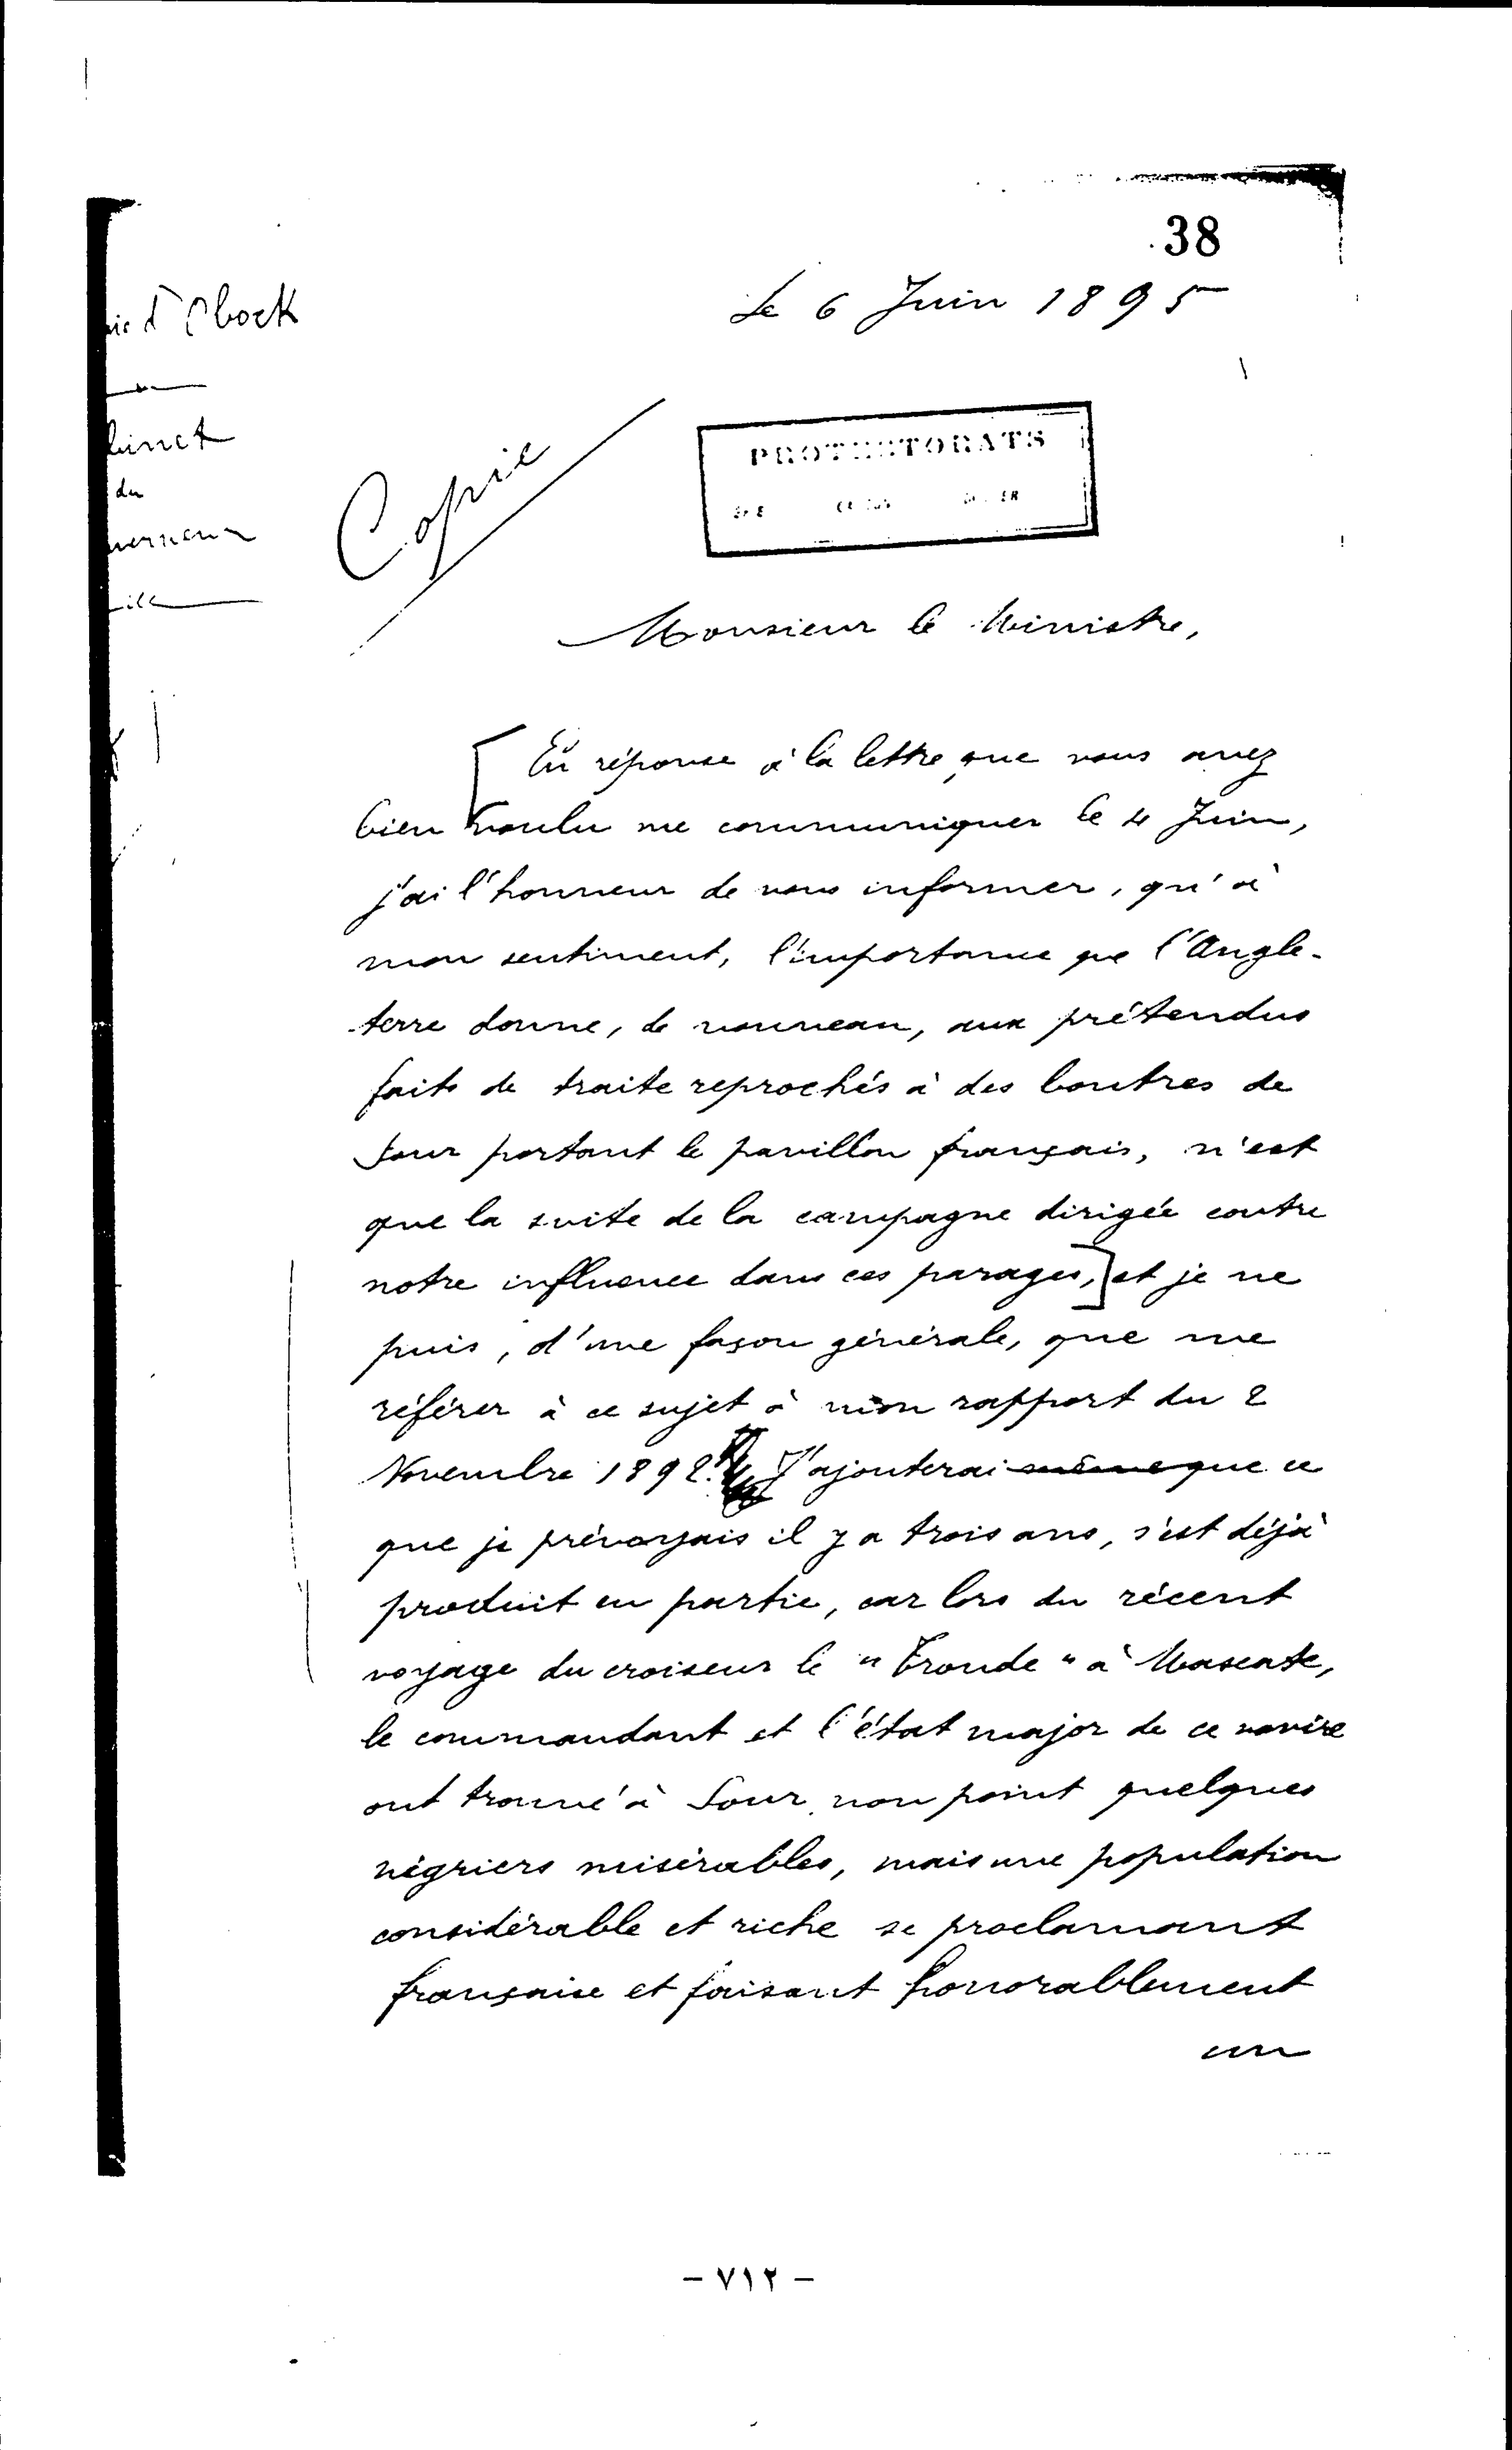 38
Le 6 Juin 1895
d'Obock
binet
du
verneur
Copie
PROTECTORATS
Monsieur le Ministre,
[En réponse à la lettre que vous avez
bien voulu me communiquer le 4 Juin,
j'ai l'honneur de vous informer, qu'à
mon sentiment, l'importance que l'Angle-
terre donne, de nouveau, aux prétendus
faits de traite reprochés à des boutres de
Sour portant le pavillon français, n'est
que la suite de la campagne dirigée contre
notre influence dans ces parages,] et je ne
puis, d'une façon générale, que me
référer à ce sujet à mon rapport du 2
Novembre 1892. J'ajouterai même que ce
que je prévoyais il y a trois ans, s'est déjà
produit en partie, car lors du récent
voyage du croiseur le "Troude" à Mascate,
le commandant et l'état major de ce navire
ont trouvé à Sour, non point quelques
négriers misérables, mais une population
considérable et riche se proclamant
française et faisant honorablement
un
- ٧١٢ -